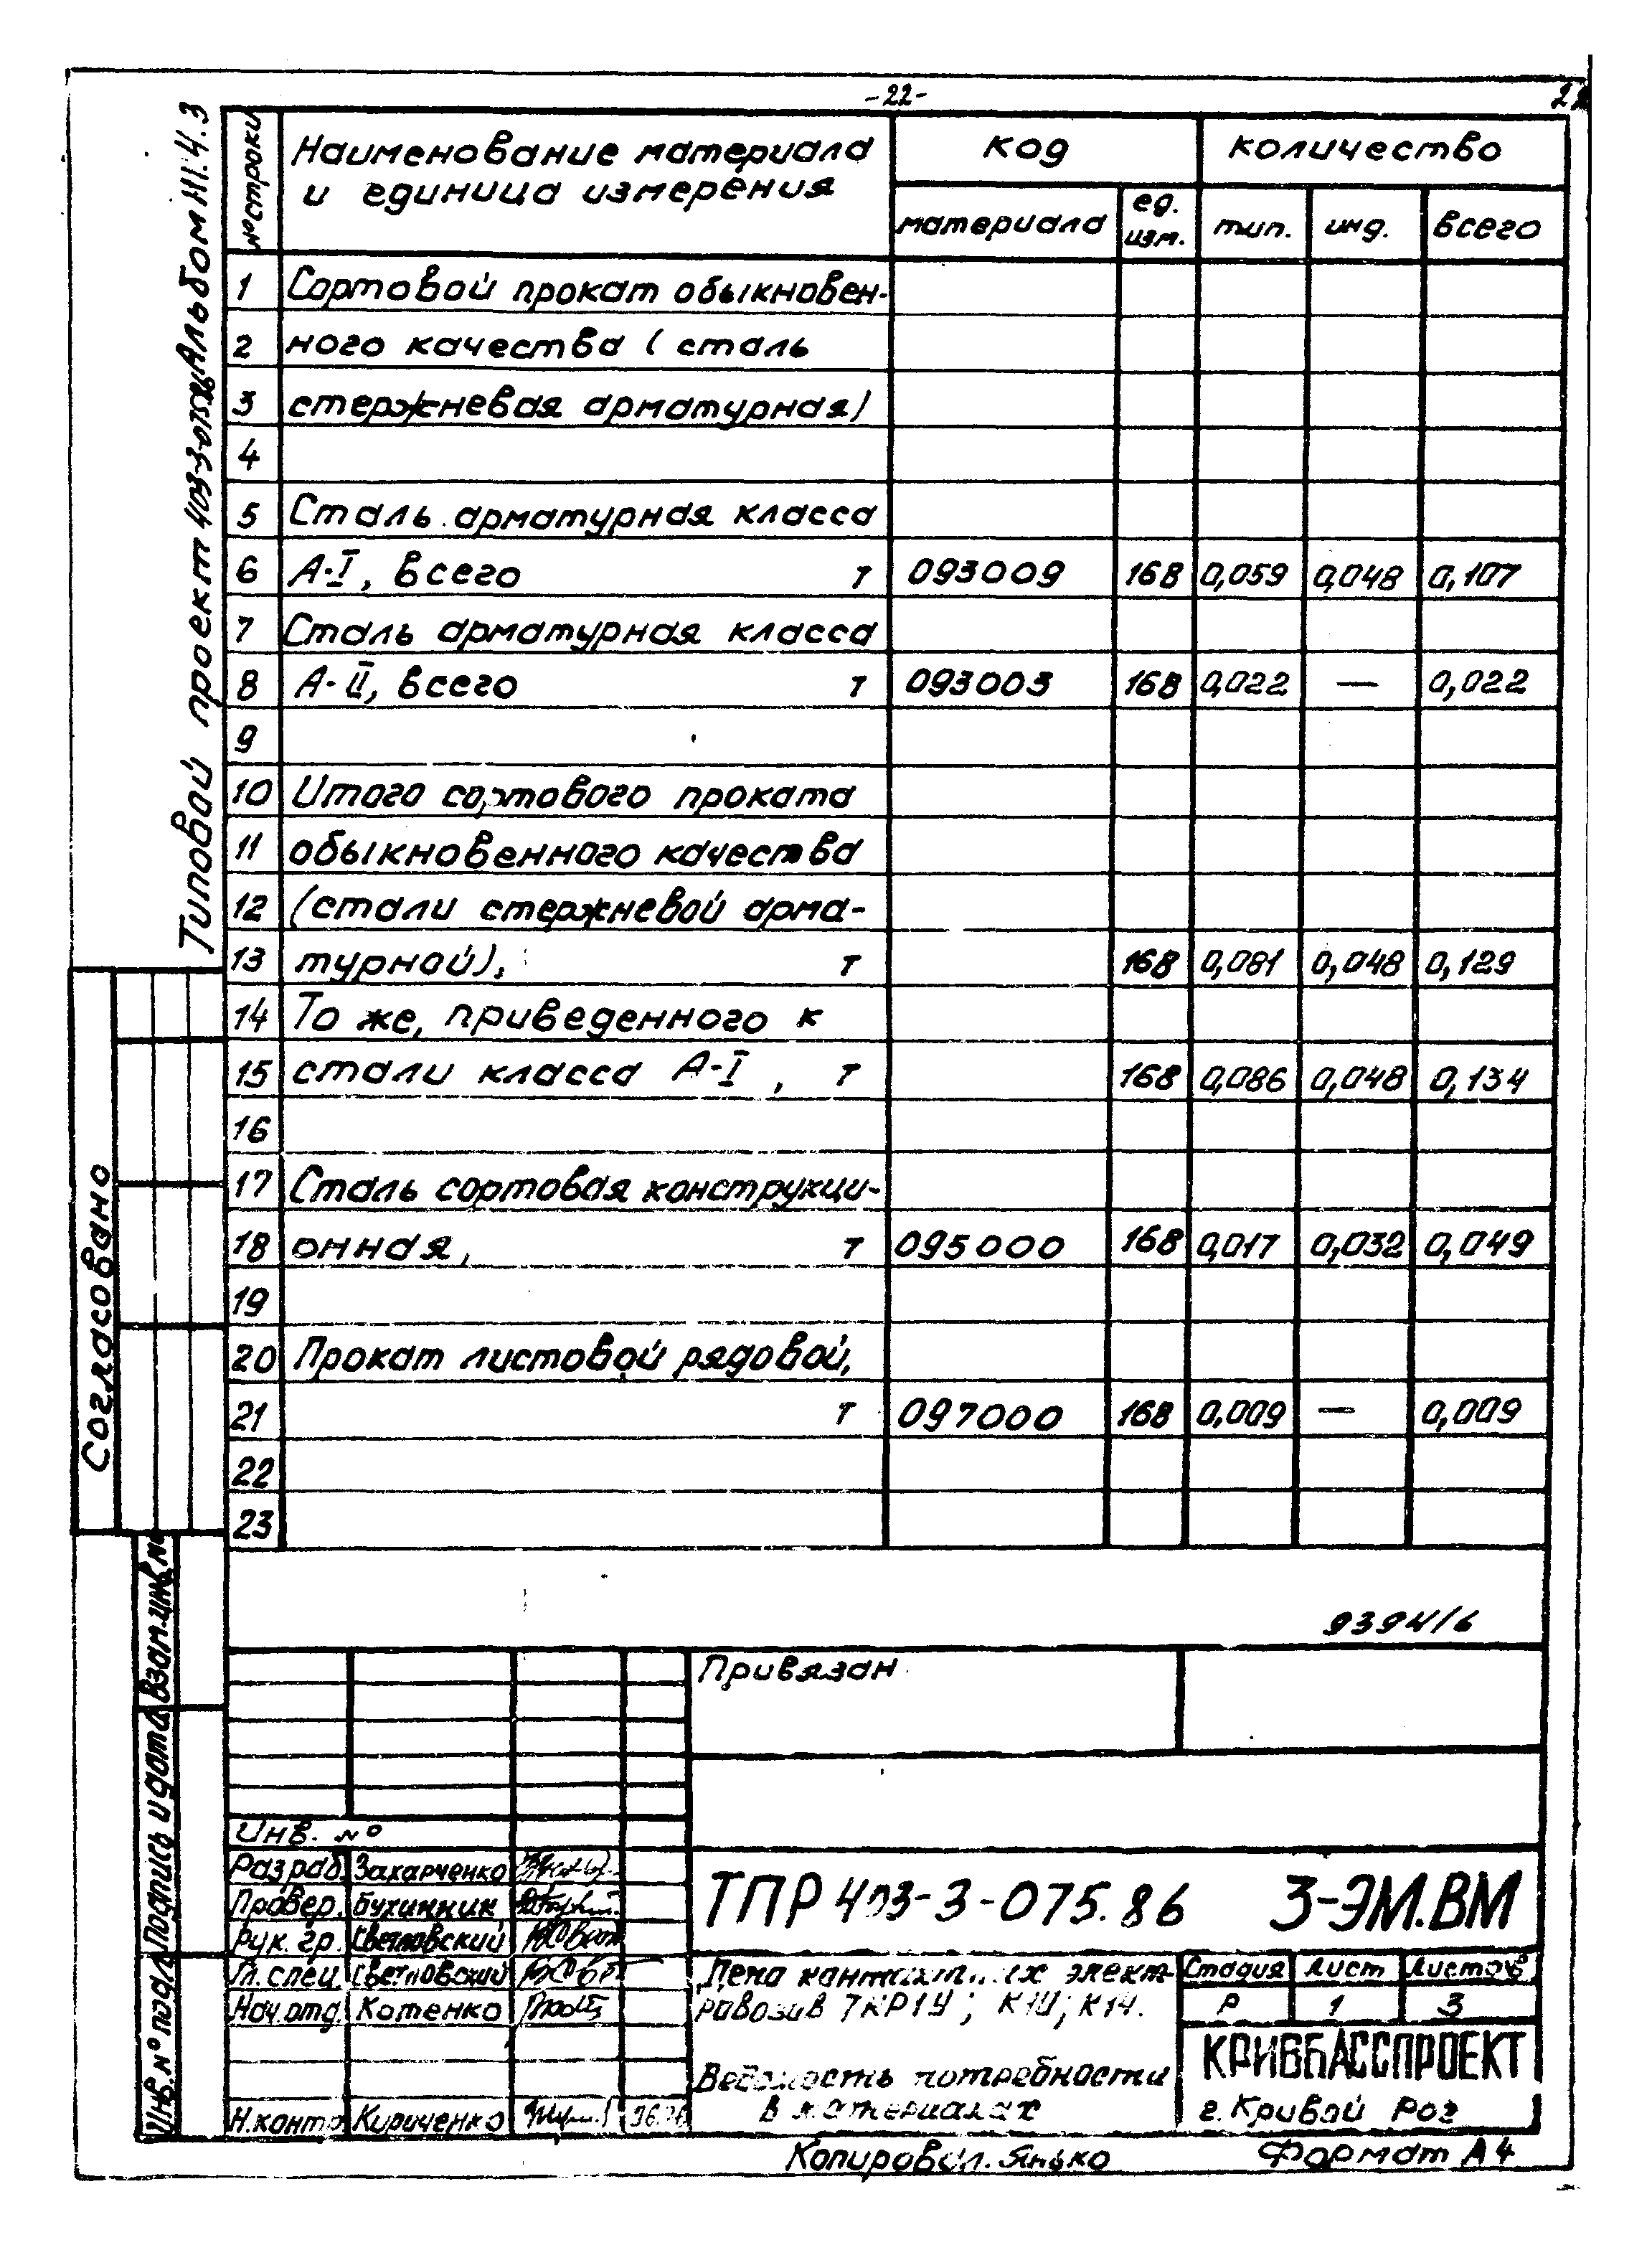 -22-
22
Типовой проект 403-3-075.86 Альбом III.4.3
№ строки
Наименование материала
и единица измерения
код
количество
материала
ед.
изм.
тип.
инд.
всего
1 Сортовой прокат обыкновен-
2 ного качества (сталь
3 стержневая арматурная)
4
5 Сталь арматурная класса
6 А-I, всего т 093009 168 0,059 0,048 0,107
7 Сталь арматурная класса
8 А-II, всего т 093003 168 0,022 — 0,022
9
10 Итого сортового проката
11 обыкновенного качества
12 (стали стержневой арма-
13 турной), т 168 0,081 0,048 0,129
14 То же, приведенного к
15 стали класса А-I, т 168 0,086 0,048 0,134
16
17 Сталь сортовая конструкци-
18 онная, т 095000 168 0,017 0,032 0,049
19
20 Прокат листовой рядовой,
21 т 097000 168 0,009 — 0,009
22
23
Согласовано
Взам.инв.№
Подпись и дата
Инв.№ подл.
9394/6
Привязан
Инв. №
Разраб. Захарченко
Провер. Бухинник
Рук. гр. Светловский
Гл. спец. Светловский
Нач.отд. Котенко
Н.контр. Кириченко
ТПР 403-3-075.86 3-ЭМ.ВМ
Депо контактных элект-
ровозов 7КР1У; К10; К14.
Ведомость потребности
в материалах
Стадия Лист Листов
Р 1 3
КРИВБАССПРОЕКТ
г. Кривой Рог
Копировал. Янько
Формат А4